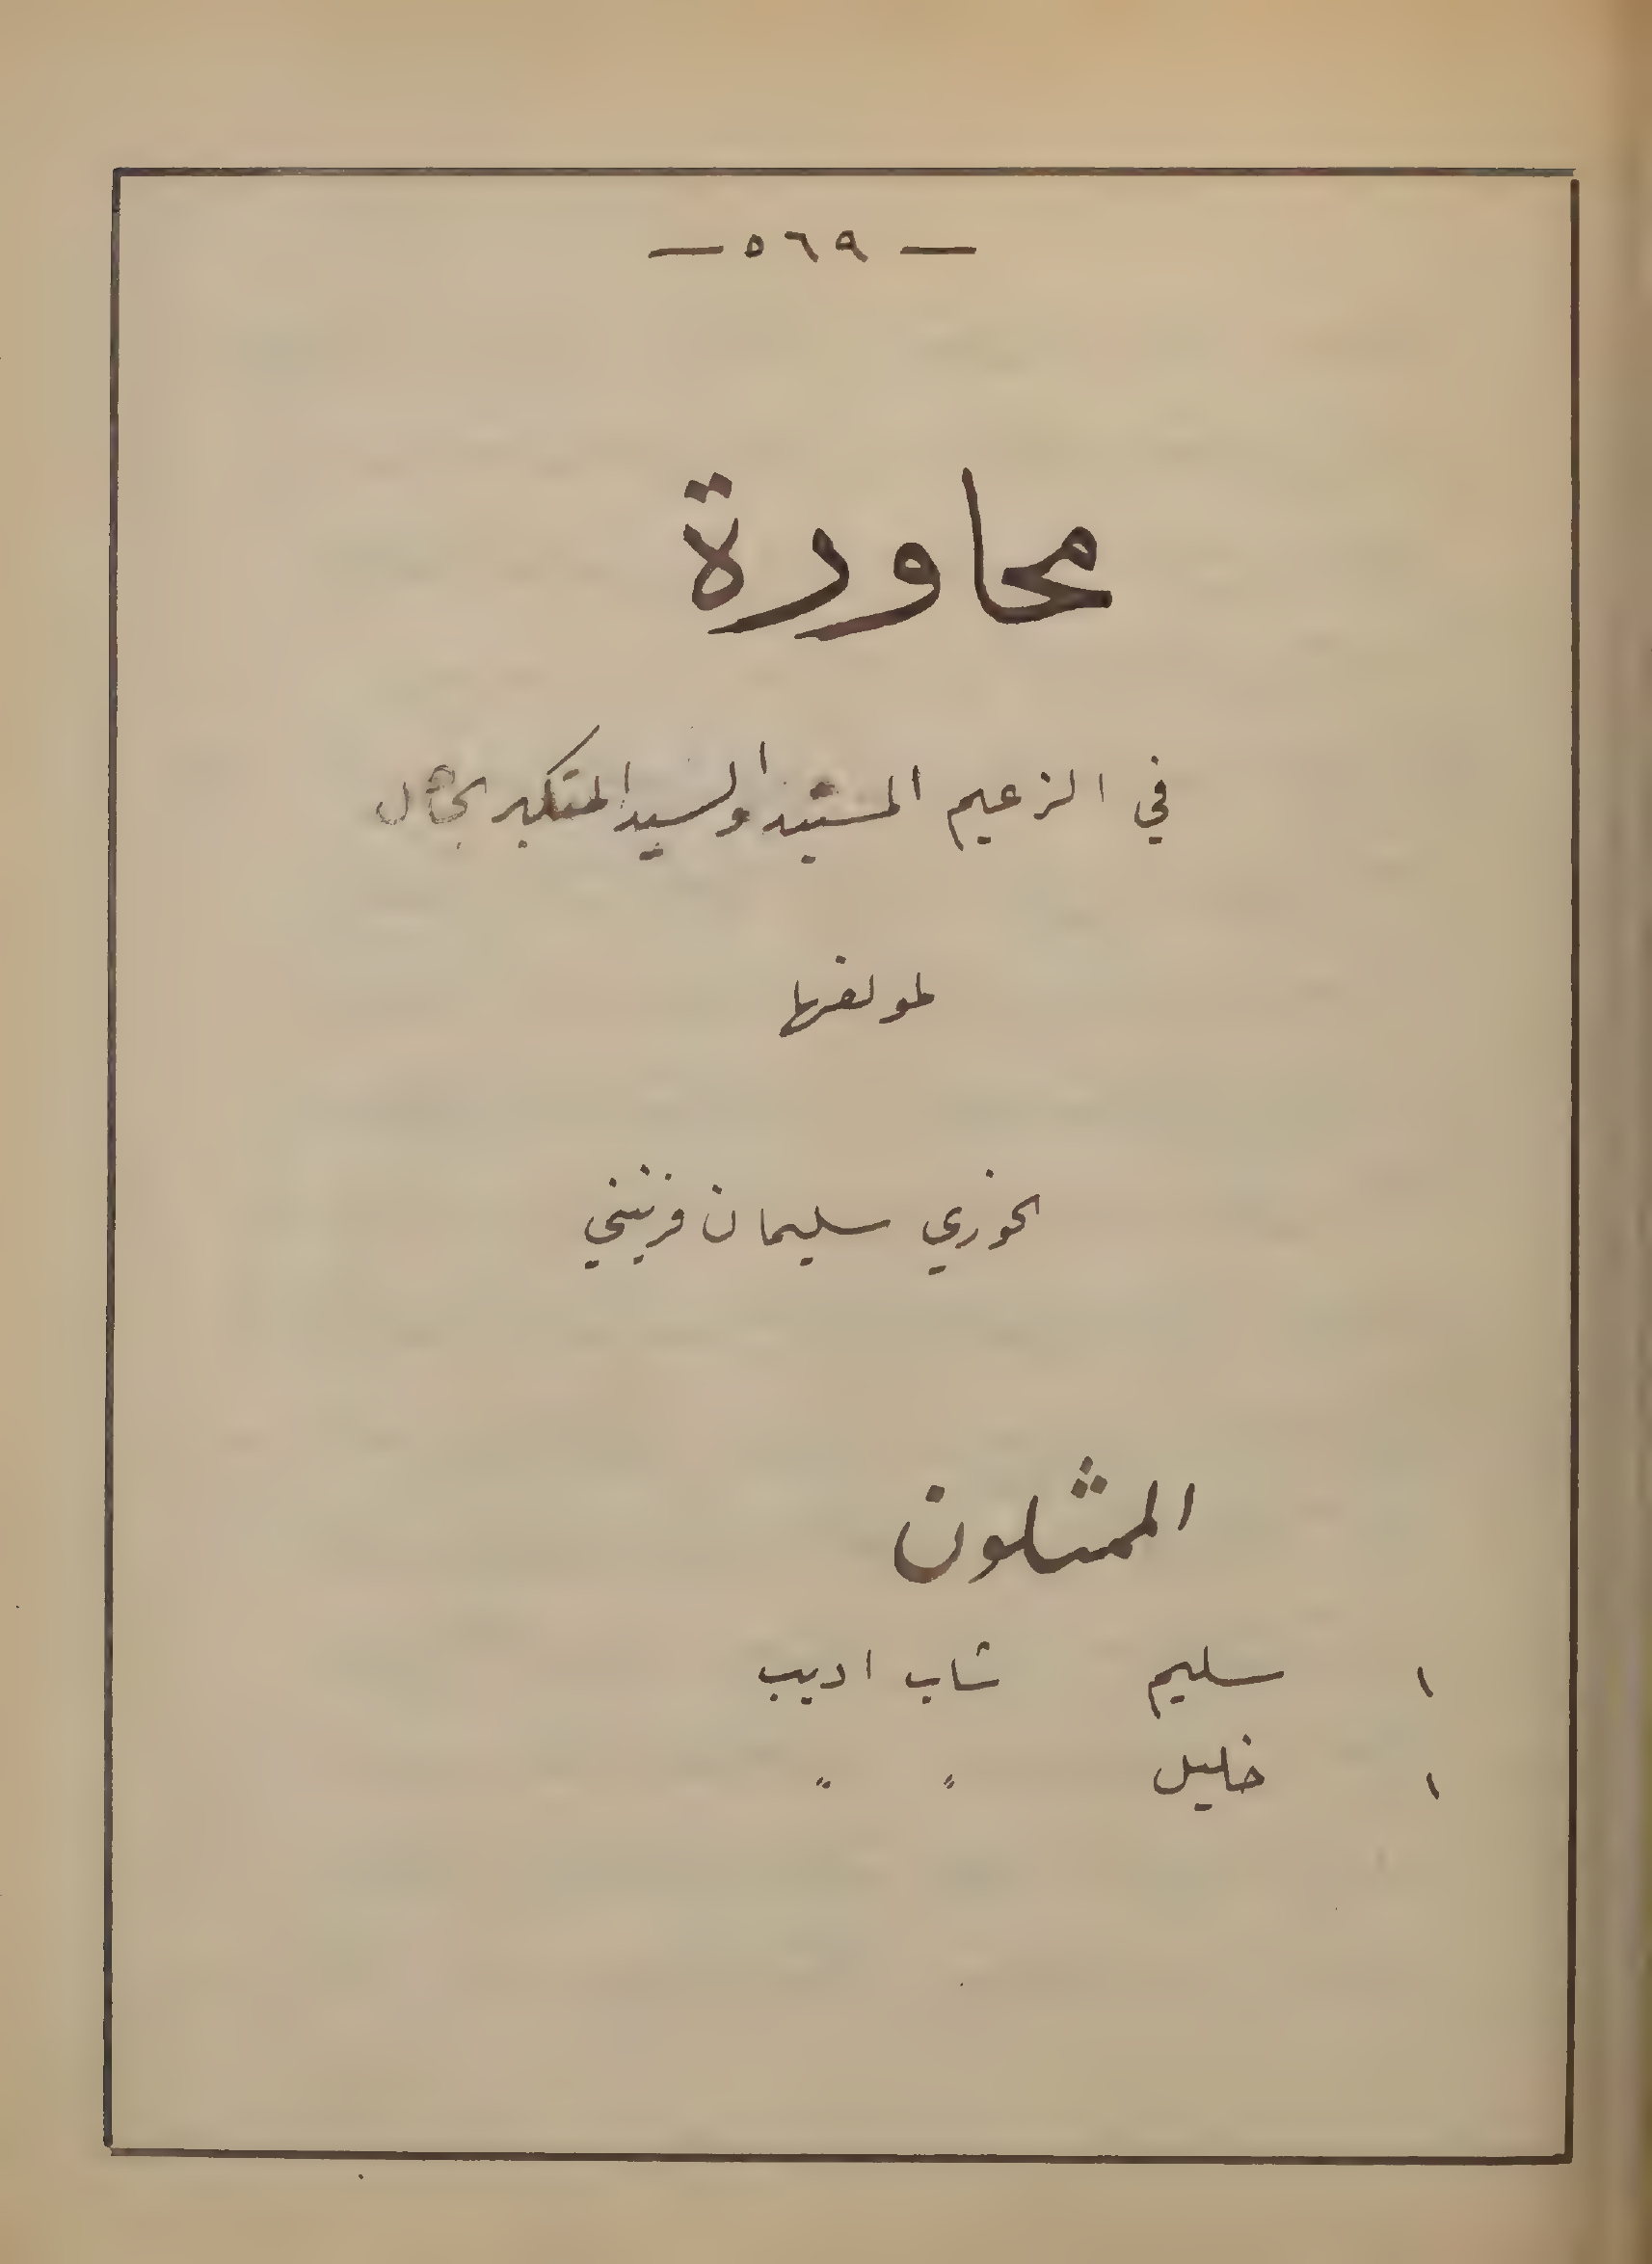 — ٥٦٩ —
محاورة
في الزعيم المستبد والسيد المتكبر
لمولفها
لخوري سليمان فرنيني
الممثلون
١ سليم شاب اديب
١ خليل " "